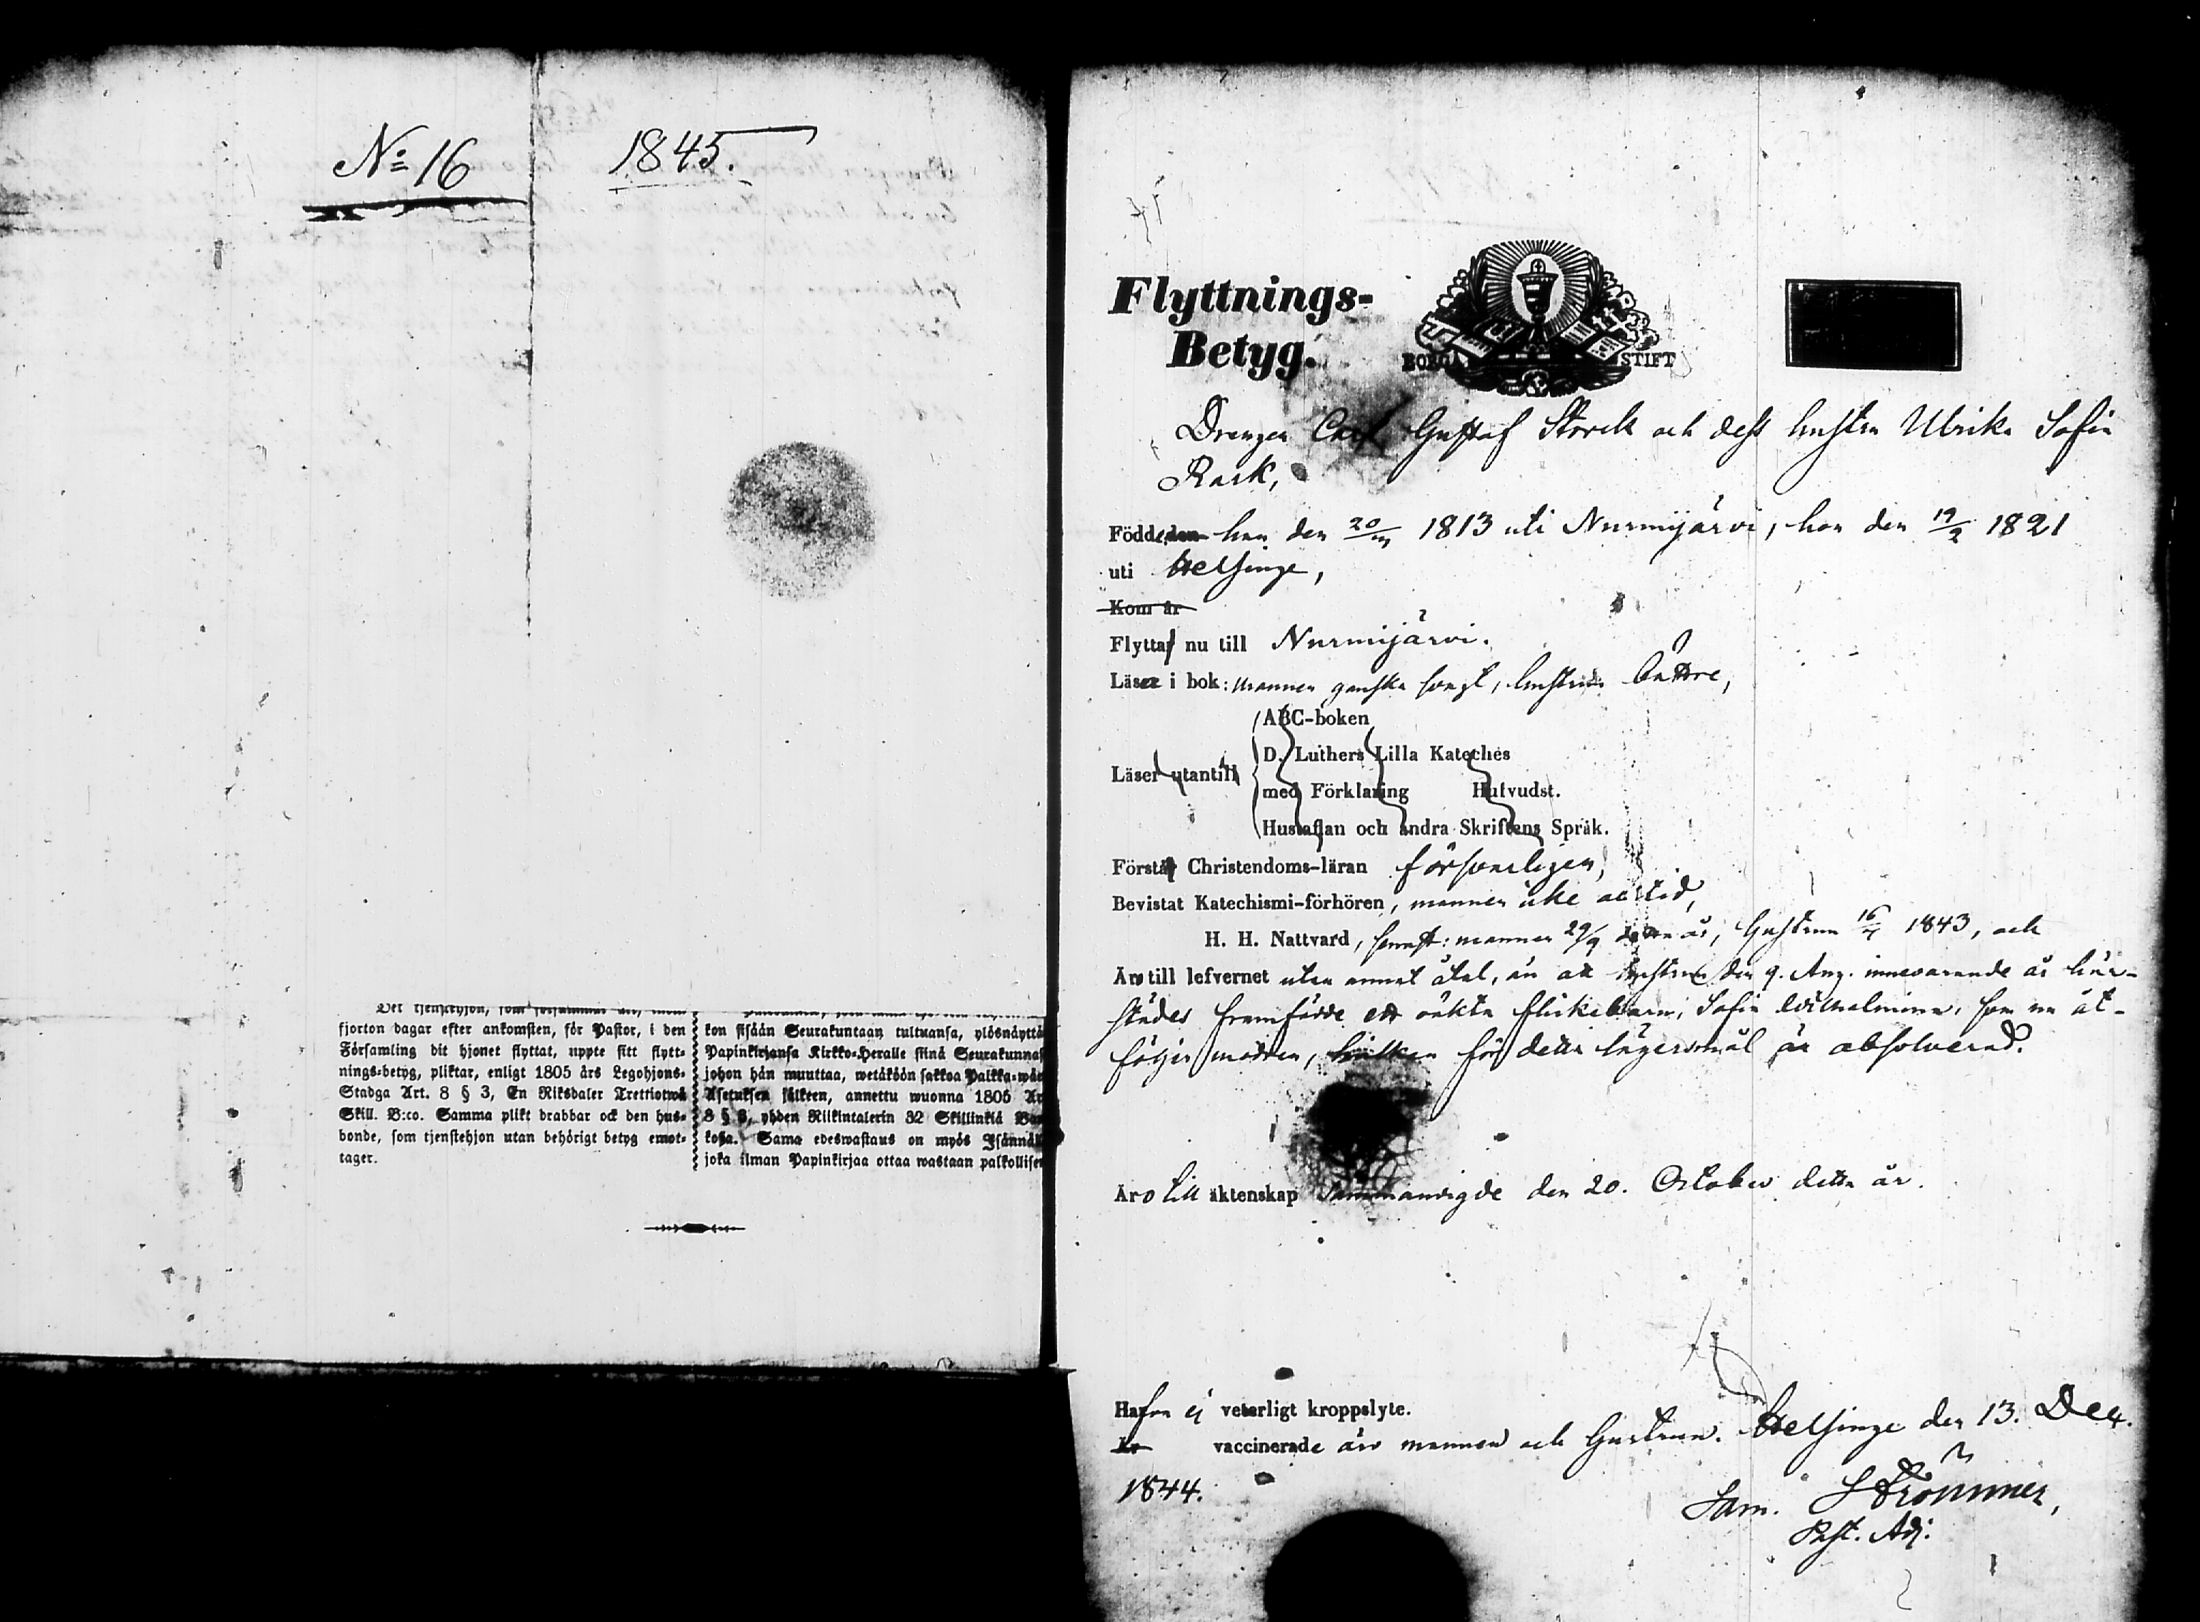 No 16
1845.
fjorton dagar efter ankomsten, för Pastor, i den
Församling dit hjonet flyttat, uppte sitt flytt-
nings-betyg, pliktar, enligt 1805 års Legohjons-
Stadga Art. 8 § 3, En Riksdaler Trettiotwå
Skill. B:co. Samma plikt drabbar ock den hus-
bonde, som tjenstehjon utan behörigt betyg emot-
tager.
kon sisään Seurakuntaan tultuansa, ylösnäyttä
Papinkirjansa Kirkko-Heralle siinä Seurakunnas
johon hän muuttaa, wetäköön sakkoa Palkka-wäen
Asetuksen jälkeen, annettu wuonna 1805 Ar
8 § 3, yhden Riikintalerin 32 Skillinkiä Ban
kossa. Sama edeswastaus on myös Isännällä
joka ilman Papinkirjaa ottaa wastaan palkollisen
Flyttnings-
Betyg.
BORGÅ STIFT
Drengen Carl Gustaf Storck och dess hustru Ulrika Sofia
Rask,
Födde den han den 20/ 1813 uti Nurmijärvi, hon den 19/2 1821
uti Helsinge,
Kom år
Flytta nu till Nurmijärvi.
Läsa i bok: mannen ganska svagt, hustrun bättre,
Läser utantill
ABC-boken
D. Luthers Lilla Kateches
med Förklaring Hufvudst.
Hustaflan och andra Skriftens Språk.
Förstå Christendoms-läran försvarligen,
Bevistat Katechismi-förhören, mannen icke alltid,
H. H. Nattvard, senast: mannen 29/9 detta år, hustrun 16/ 1843, och
Äro till lefvernet utan annat åtal, än att hustrun den 9. Aug. innevarande år här-
städes framfödde ett oäkta flickebarn, Sofia Wilhelmina, som nu åt-
följer modren, hvilken för detta lägersmål är absolverad.
Äro till äktenskap sammanvigde den 20. October detta år.
Hafva ej veterligt kroppslyte.
Är vaccinerade äro mannen och hustrun. Helsinge den 13. Dec.
1844.
Sam. Strömmer,
Past. Adj.